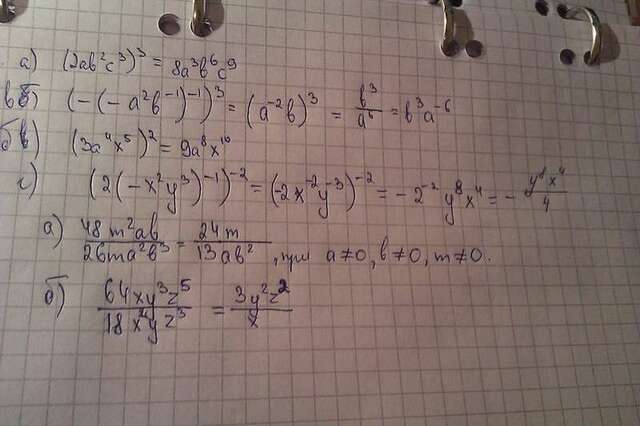 а) (2ab²c³)³ = 8a³b⁶c⁹
в б) (-(-a²b⁻¹)⁻¹)³ = (a⁻²b)³ = b³/a⁶ = b³a⁻⁶
б в) (3a⁴x⁵)² = 9a⁸x¹⁰
г) (2(-x²y³)⁻¹)⁻² = (-2x⁻²y⁻³)⁻² = -2⁻² y⁸ x⁴ = - y⁸x⁴/4
а) 48m²ab/26ma²b³ = 24m/13ab², при a≠0, b≠0, m≠0.
б) 64xy³z⁵/18x²yz³ = 3y²z²/x